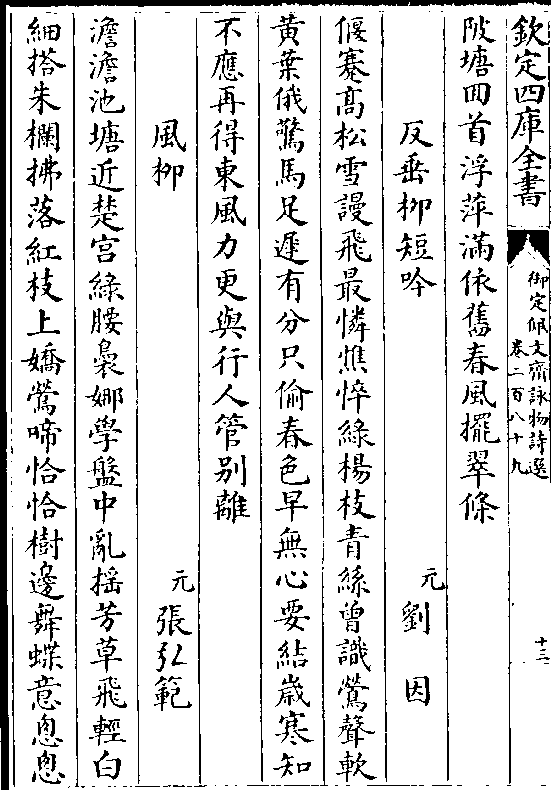 欽定四庫全書
御定佩文齋詠物詩選
卷二百八十九
十三
陂塘囬首浮萍滿依舊春風擺翠條
反垂柳短吟
元劉因
偃蹇髙松雪謾飛最憐憔悴綠楊枝青絲曾識鶯聲軟
黃葉俄驚馬足遲有分只偷春色早無心要結歲寒知
不應再得東風力更與行人管别離
風柳
元張弘範
澹澹池塘近楚宫綠腰裊娜學盤中亂揺芳草飛輕白
細搭朱欄拂落紅枝上嬌鶯啼恰恰樹邊舞蝶意悤悤